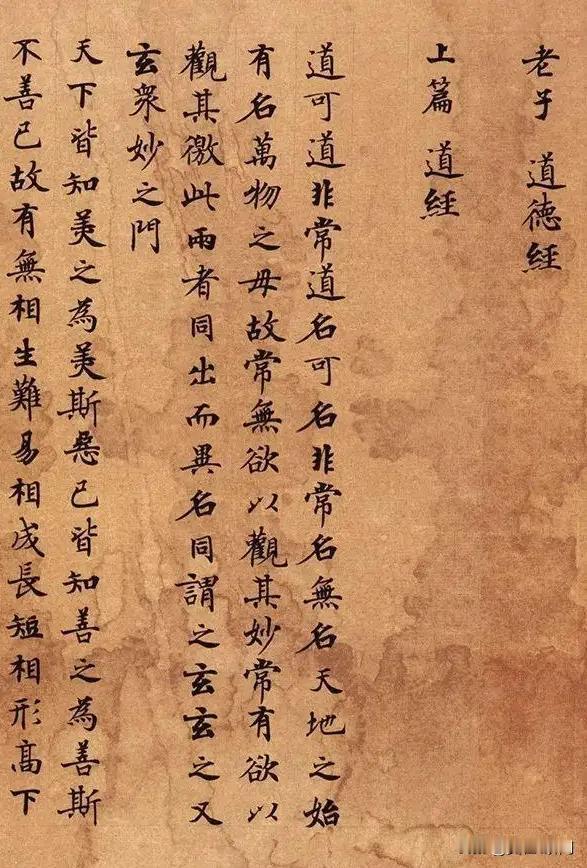 老子 道德經
上篇 道經
道可道非常道名可名非常名無名天地之始
有名萬物之母故常無欲以觀其妙常有欲以
觀其徼此兩者同出而異名同謂之玄玄之又
玄衆妙之門
天下皆知美之為美斯惡已皆知善之為善斯
不善已故有無相生難易相成長短相形高下